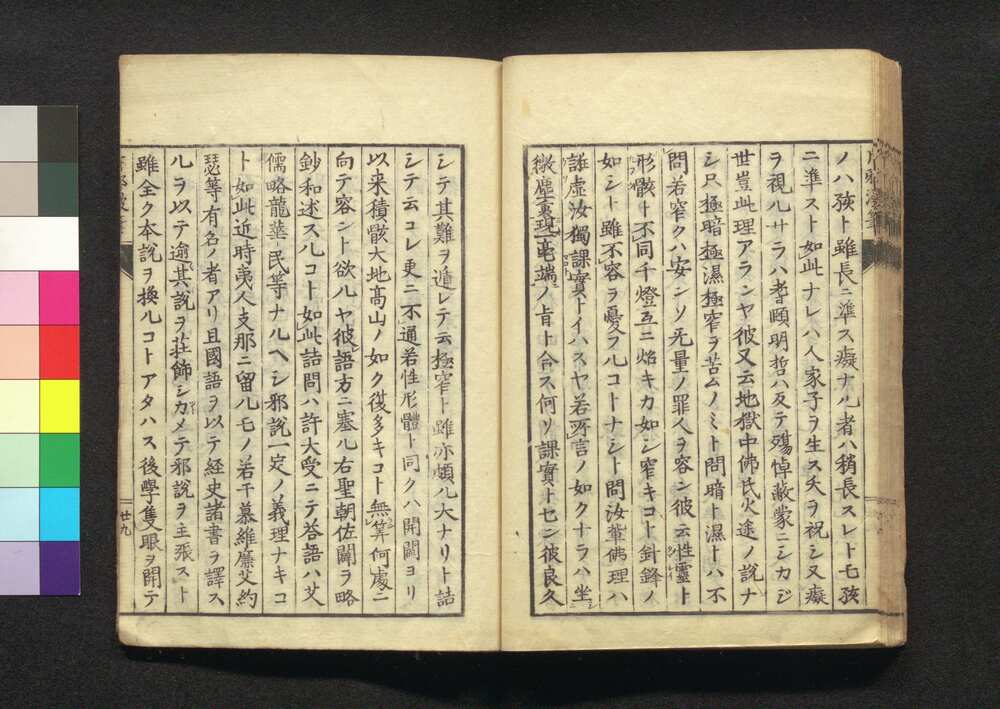 ノハ孩ト雖長ニ準ス癡ナル者ハ稍長スレトモ孩
ニ準スト如此ナレハ人家子ヲ生ス夭ヲ祝シ又癡
ヲ視ルサラハ耆頤明哲ハ反テ殤悼蔽蒙ニシカジ
世豈此理アランヤ彼又云地獄中佛氏火途ノ説ナ
シ只極暗極濕極窄ヲ苦ムノミト問暗ト濕トハ不
問若窄クハ安ンソ无量ノ罪人ヲ容ン彼云性靈ト
形骸ト不同千燈互ニ焰キカ如シ窄キコト針鋒ノ
如シト雖不容ヲ憂フルコトナシト問汝華佛理ハ
誰虚汝獨課實トイハスヤ若所言ノ如クナラハ坐
微塵裏現毫端ノ旨ト合ス何ソ課實トセン彼良久
シテ其難ヲ遁レテ云極窄ト雖亦頗ル大ナリト詰
シテ云コレ更ニ不通若性形體ト同クハ開闢ヨリ
以来積骸大地高山ノ如ク復多キコト無算何處ニ
向テ容ント欲ルヤ彼語方ニ塞ル右聖朝佐闢ヲ略
鈔和述スルコト如此詰問ハ許大受ニテ荅語ハ艾
儒略龍華民等ナルヘシ邪説一定ノ義理ナキコ
ト如此近時夷人支那ニ留ルモノ若干慕維廉艾約
瑟等有名ノ者アリ且國語ヲ以テ経史諸書ヲ譯ス
ルヲ以テ逾其説ヲ荘飾シカメテ邪説ヲ主張スト
雖全ク本説ヲ換ルコトアタハス後學隻眼ヲ開テ
廿九